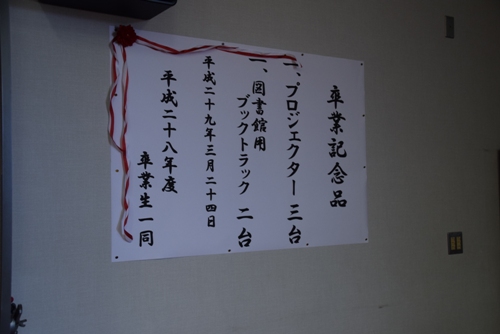 卒業記念品
一、プロジェクター 三台
一、図書館用
ブックトラック 二台
平成二十九年三月二十四日
平成二十八年度
卒業生一同